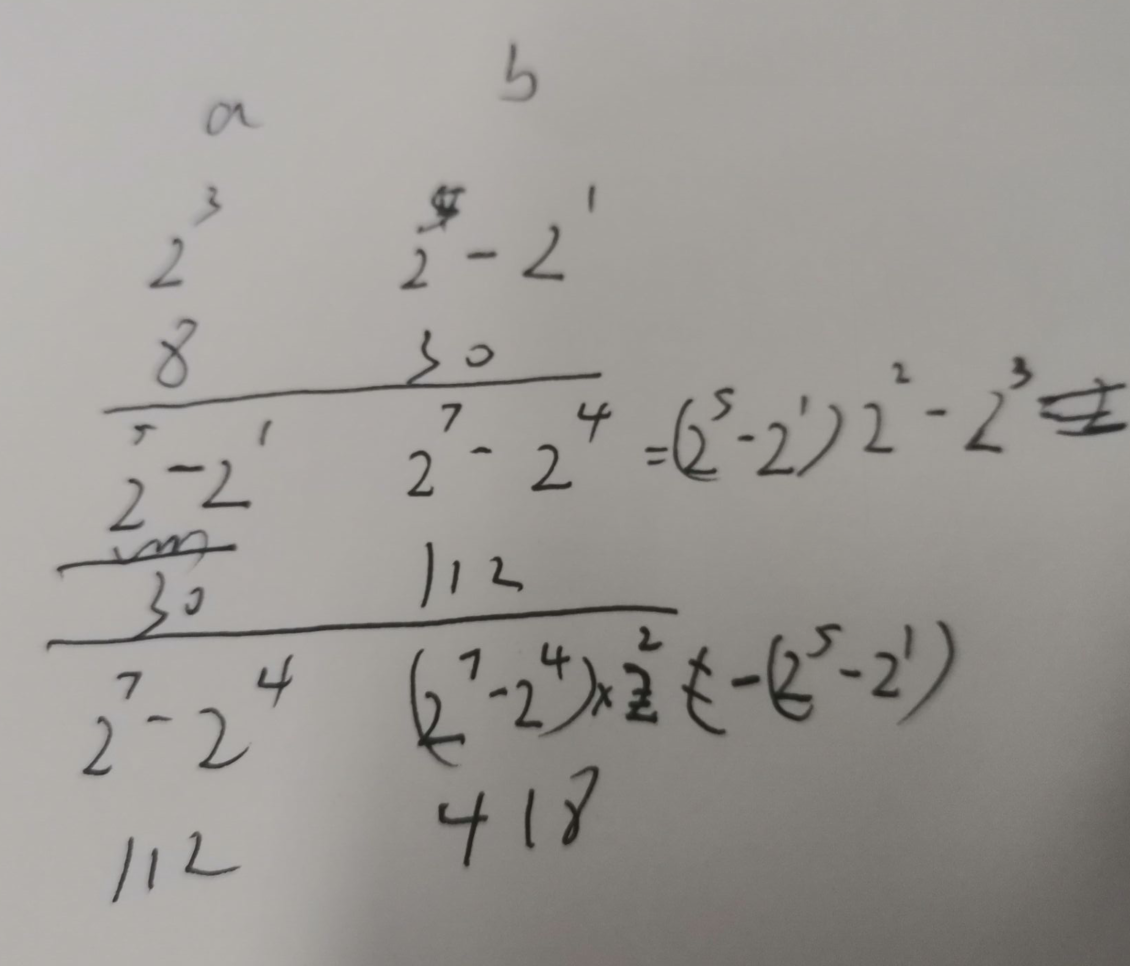 a b
2³ 2⁵ - 2¹
8 30
2⁵ - 2¹ 2⁷ - 2⁴ = (2⁵ - 2¹) 2² - 2³
30 112
2⁷ - 2⁴ (2⁷ - 2⁴) × 2² - (2⁵ - 2¹)
112 418